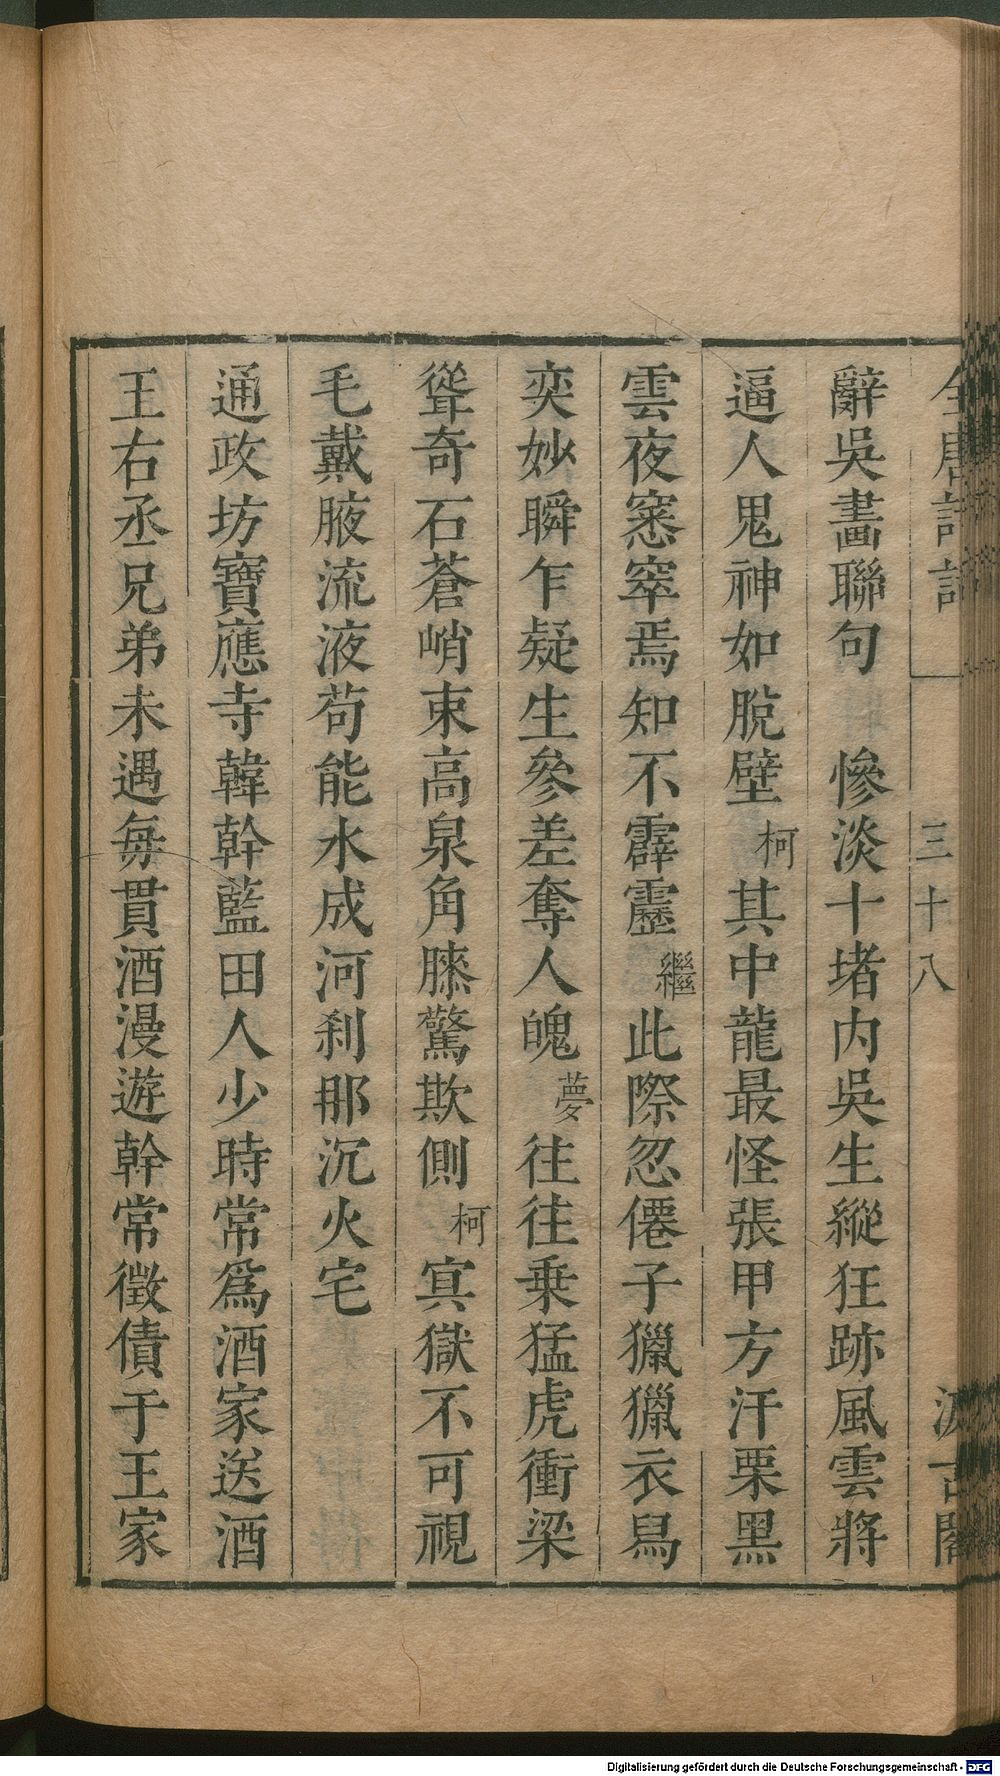 辭吳畫聯句　慘淡十堵內吳生縱狂跡風雲將
逼人鬼神如脫壁柯其中龍最怪張甲方汗栗黑
雲夜窸窣焉知不霹靂繼此際忽僊子獵獵衣舄
奕妙瞬乍疑生參差奪人魄夢往往乗猛虎衝梁
聳奇石蒼峭束高泉角膝驚欺側柯㝠獄不可視
毛戴腋流液苟能水成河刹那沉火宅
通政坊寶應寺韓幹藍田人少時常爲酒家送酒
王右丞兄弟未遇毎貰酒漫遊幹常徵債于王家
三十八
Digitalisierung gefördert durch die Deutsche Forschungsgemeinschaft - DFG